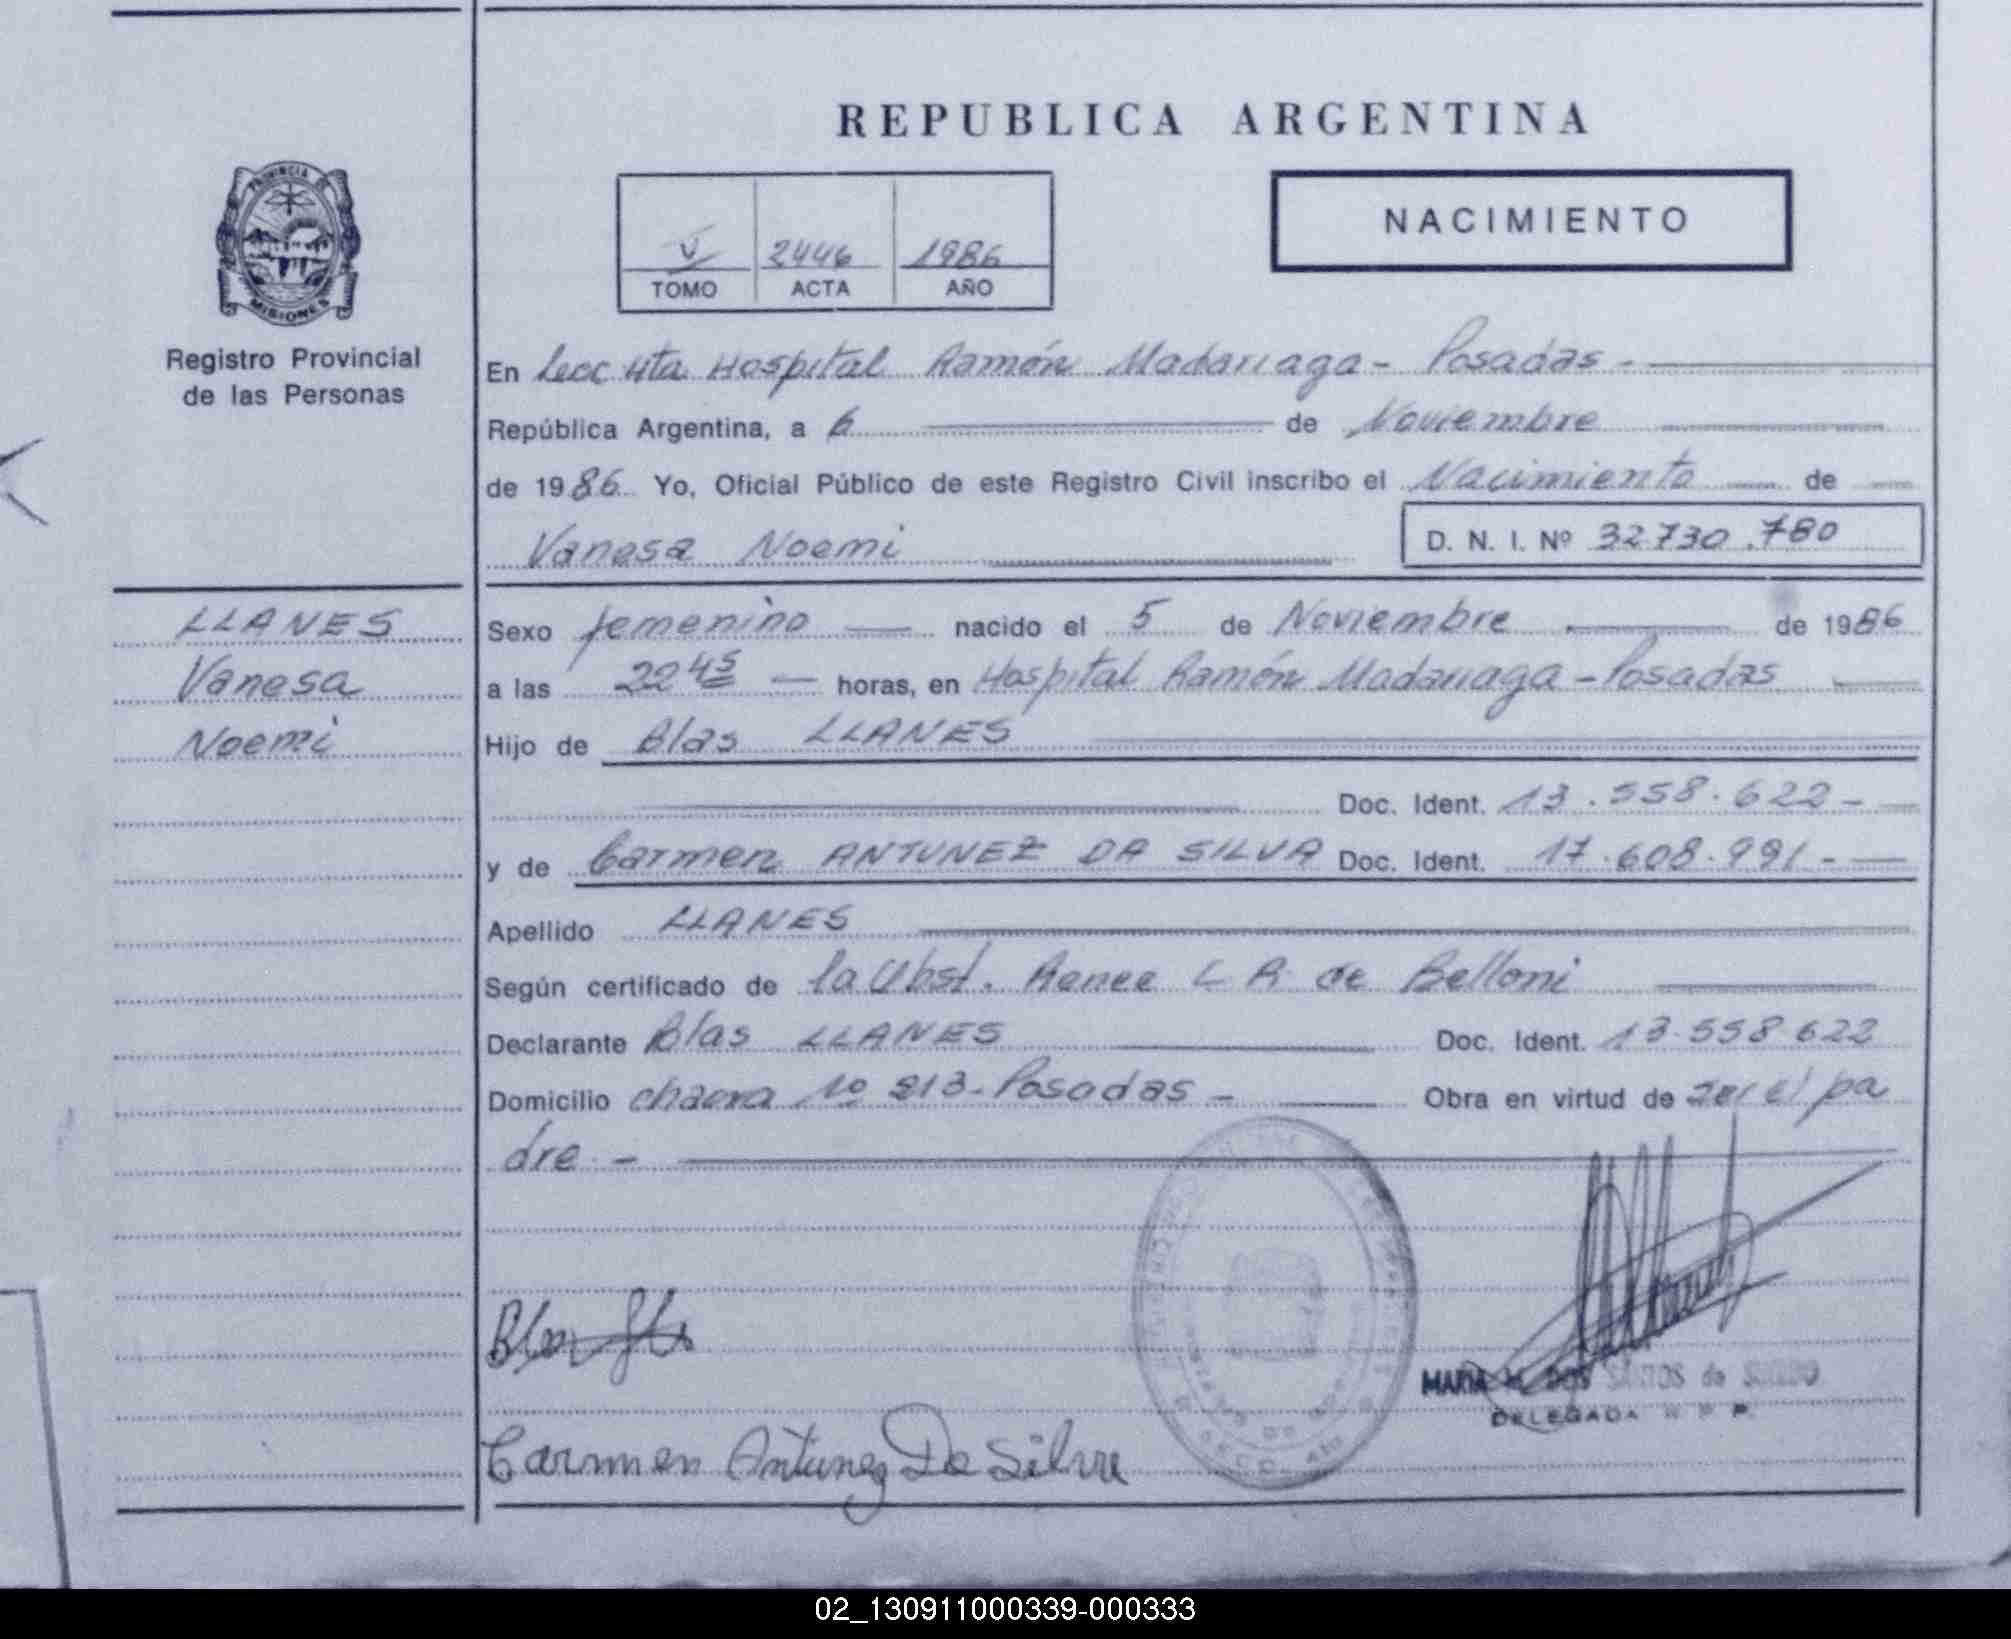 REPUBLICA ARGENTINA
PROVINCIA DE
MISIONES
Registro Provincial
de las Personas
V 2446 1986
TOMO ACTA AÑO
NACIMIENTO
En Secc 4ta Hospital Ramón Madariaga - Posadas -
República Argentina, a 6 de Noviembre
de 1986 Yo, Oficial Público de este Registro Civil inscribo el Nacimiento de
Vanesa Noemi D. N. I. Nº 32730.780
LLANES
Vanesa
Noemi
Sexo femenino nacido el 5 de Noviembre de 1986
a las 22 45 horas, en Hospital Ramón Madariaga - Posadas
Hijo de Blas LLANES
Doc. Ident. 13.558.622 -
y de Carmen ANTUNEZ DA SILVA Doc. Ident. 17.608.991 -
Apellido LLANES
Según certificado de la Obst. Renee L R de Belloni
Declarante Blas LLANES Doc. Ident. 13.558.622
Domicilio chacra Nº 213 - Posadas - Obra en virtud de ser el pa
dre -
Carmen Antunez Da Silva
MARIA DOS SANTOS de
DELEGADA R P P
02_130911000339-000333